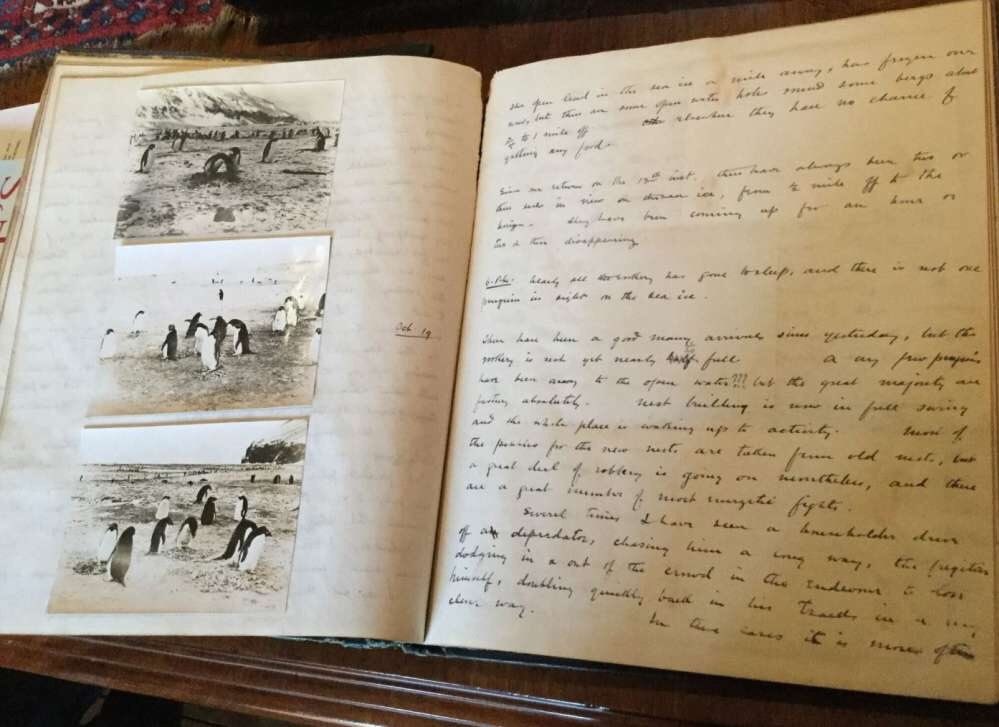 Oct. 19
The open lead in the sea ice a mile away, has frozen over
now, but there are some open water holes round some bergs about
½ to 1 mile off elsewhere they have no chance of
getting any food.
Since our return on the 13th inst. there have always been two or
three seals in view on drift ice, from ½ mile off to the
They have been coming up for an hour or
two & then disappearing
Nearly all the rookery has gone to sleep, and there is not one
penguin in sight on the sea ice.
There have been a good many arrivals since yesterday, but the
rookery is not yet nearly full A very few penguins
have been away to the open water??? but the great majority are
fasting absolutely. Nest building is now in full swing
and the whole place is waking up to activity. Most of
the pebbles for the new nests are taken from old nests, but
a great deal of robbery is going on nonetheless, and there
are a great number of most energetic fights.
Several times I have seen a householder drive
off a depredator, chasing him a long way, the fugitive
dodging in & out of the crowd in the endeavour to lose
himself, doubling quickly back in his tracks in a very
clever way. In these cases it is more often